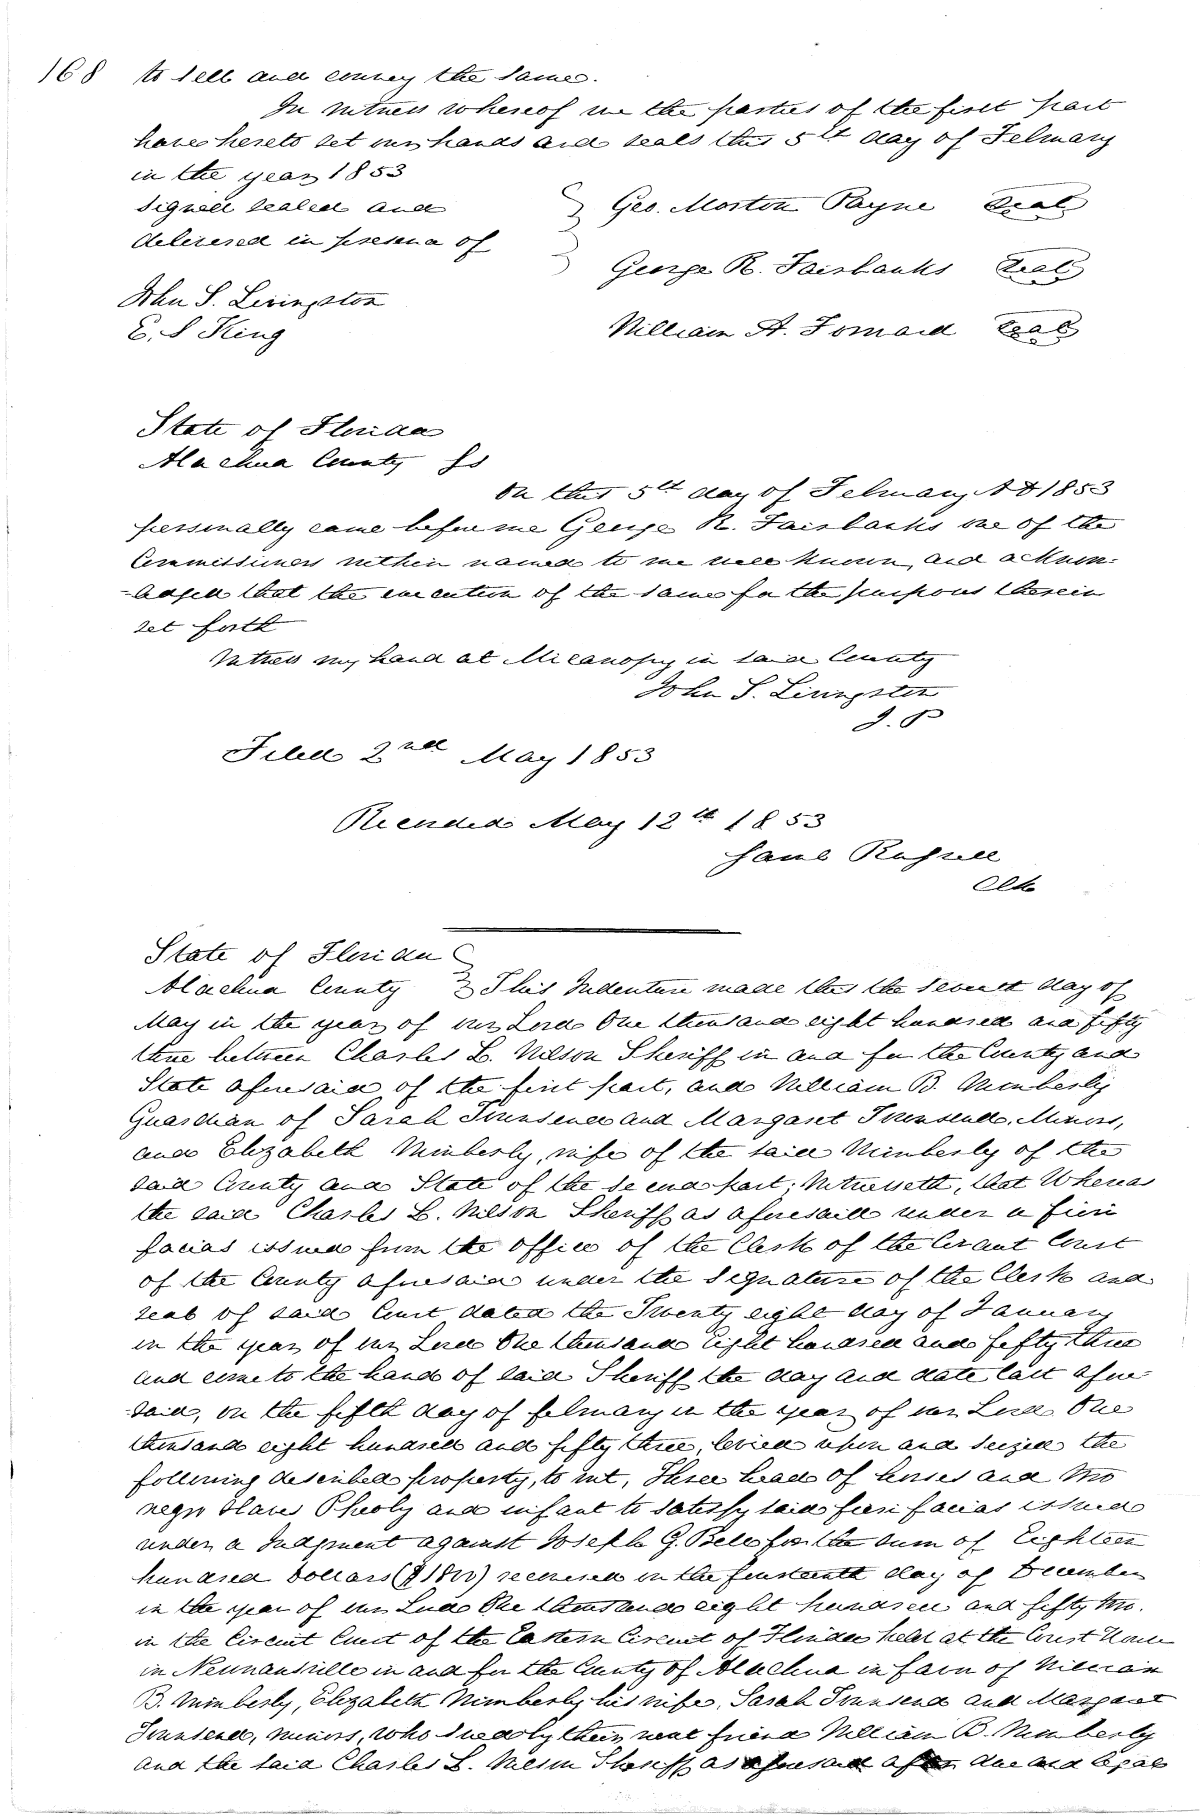 168 to sell and convey the same.
In Witness whereof we the parties of the first part
have hereto set our hands and seals this 5th day of February
in the year 1853
Signed sealed and
delivered in presence of
Geo. Morton Payne Seal
George R. Fairbanks Seal
John S. Livingston
E. S King
William A. Forward Seal
State of Florida
Alachua County Ss
On this 5th day of February A D 1853
personally came before me George R. Fairbanks one of the
Commissioners within named to me well known, and acknow-
-ledged that the execution of the same for the purposes therein
set forth
Witness my hand at Micanopy in said County
John S. Livingston
J. P
Filed 2nd May 1853
Recorded May 12th 1853
Saml Russell
Clk
State of Florida
Alachua County This Indenture made this the seventh day of
May in the year of our Lord One thousand eight hundred and fifty
three between Charles L. Wilson Sheriff in and for the County and
State aforesaid of the first part, and William B. Wimberly
Guardian of Sarah Townsend and Margaret Townsend, Minors,
and Elizabeth Wimberly, wife of the said Wimberly of the
said County and State of the second part; Witnesseth, that Whereas
the said Charles L. Wilson Sheriff as aforesaid under a fieri
facias issued from the office of the Clerk of the Circuit Court
of the County aforesaid under the signature of the Clerk and
seal of said Court dated the Twenty eight day of January
in the year of our Lord One thousand Eight hundred and fifty three
and come to the hands of said Sheriff the day and date last afore-
-said, on the fifth day of february in the year of our Lord One
thousand eight hundred and fifty three, levied upon and seized the
following described property, to wit, Three head of horses and two
negro slaves Pheoby and infant to satisfy said fieri facias issued
under a Judgment against Joseph G. Bell for the sum of Eighteen
hundred Dollars ($1800) recovered on the fourteenth day of December
in the year of our Lord One thousand eight hundred and fifty two.
in the Circuit Court of the Eastern Circuit of Florida held at the Court House
in Newnansville in and for the County of Alachua in favor of William
B. Wimberly, Elizabeth Wimberly his wife, Sarah Townsend and Margaret
Townsend, minors, who sued by their next friend William B. Wimberly
and the said Charles L. Wilson Sheriff as aforesaid after due and legal